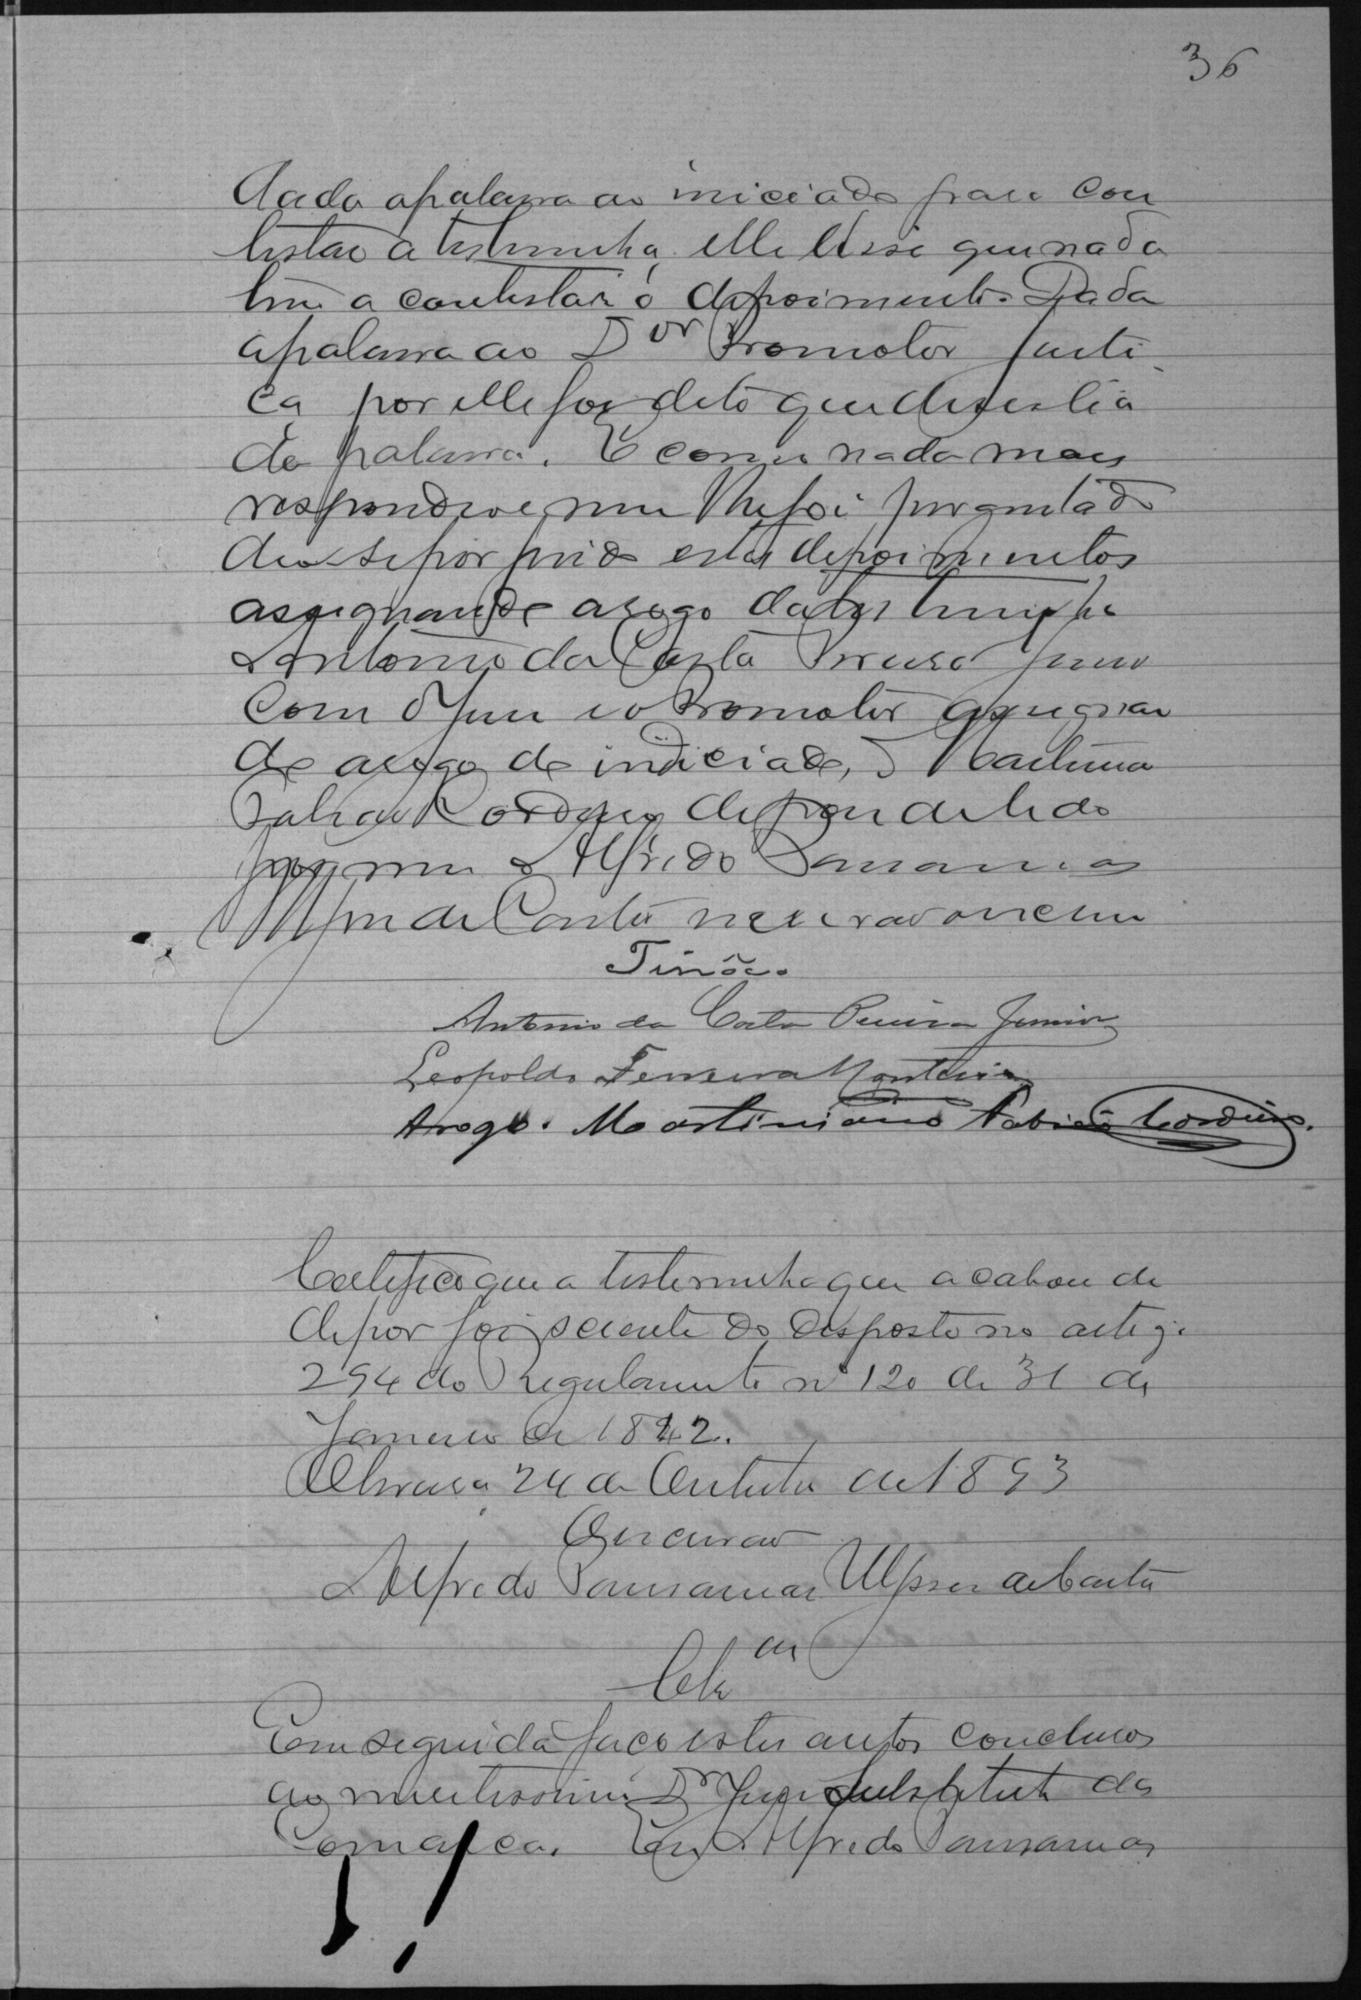 36
Dada apalavra ao iniciado para con
testar a testimunha, elle disse que nada
tem a contestar o depoimento. Dada
apalavra ao Dor Promotor Justi
ça por elle foi dito que desestia
da palavra. E como nada mais
respondeo e nem lhe foi perguntado
deo-se por findo estes depoimentos
assignando arogo da testimunha
Antonio da Costa Pereira Junior
com o Juiz e o Promotor assignan
do arogo do indiciado, Martiniano
Fabião Cordeiro depois de lido
por mim Alfredo Pausanias
Ulysses de Castro escrivão o escrevi
Tinôco.
Antonio da Costa Pereira Junior
Leopoldo Ferreira Monteiro
Arogo. Martiniano Fabião Cordeiro.
Certifico que a testemunha que acabou de
depor foi sciente do disposto no artigo
294 do Regulamento nº 120 de 31 de
Janeiro de 1842.
24 de Outubro de 1893
O escrivão
Alfredo Pausanias Ulysses de Castro
Clsam
Em seguida faço estes autos conclusos
ao meritissimo Dr Juiz Substituto da
Comarca. Eu Alfredo Pausanias